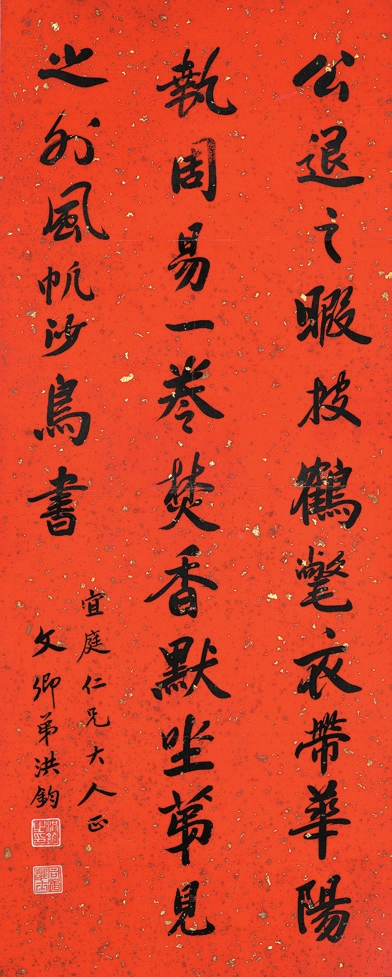 公退之暇披鶴氅衣帶華陽
執周易一卷焚香默坐苐見
之外風帆沙鳥書
宜庭仁兄大人正
文卿弟洪鈞